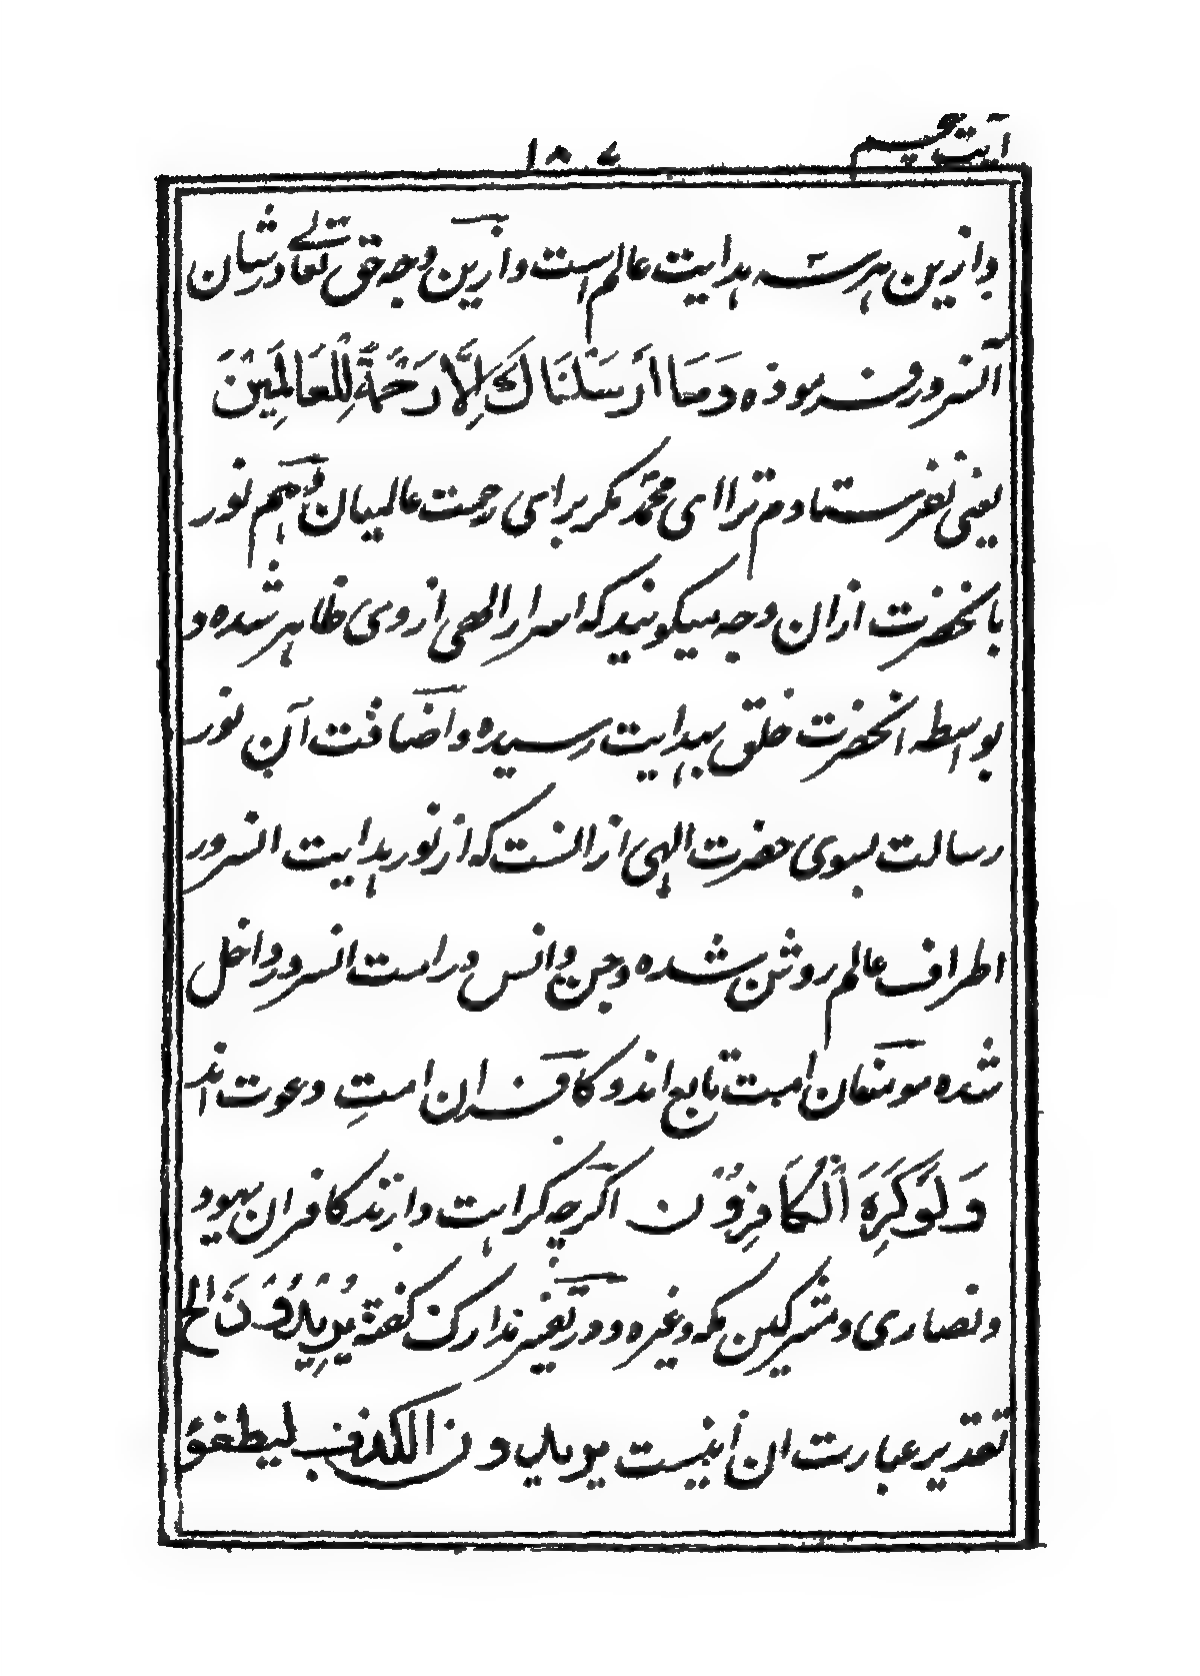 آیت پنجم ۱۸۷
و ازین هر سه هدایت عالم است و ازین وجه حق تعالے در شان
آنسرور فرموده وَمَا أَرْسَلْنَاكَ إِلَّا رَحْمَةً لِّلْعَالَمِيْنَ
یعنی نفرستادم ترا ای محمّد مگر برای رحمت عالمیان و هم نور
بانحضرت ازان وجه میگویند که اسرار الهی از وی ظاهر شده و
بواسطه انحضرت خلق بهدایت رسیده و اضافت آن نور
رسالت بسوی حضرت الهی از انست که از نور هدایت انسرور
اطراف عالم روشن شده و جن و انس در امت انسرور داخل
شده مومنان امت تابع اند و کافران امتِ دعوت اند
وَلَوْ كَرِهَ الْكَافِرُوْن اگرچه کراهت دارند کافران یهود
و نصاری و مشرکین مکه و غیره و در تفسیر مدارک گفته يُرِيْدُوْنَ الخ
تقدیر عبارت ان اینست یریدون الکذب لیطفؤ